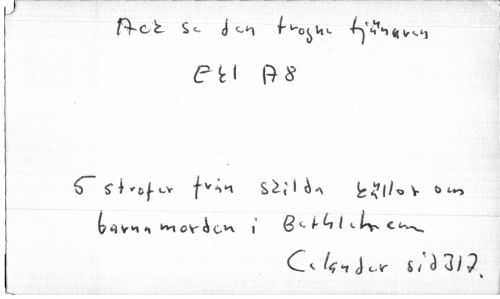 Ack se den trogne tjänaren
Ekl A8
5 strofer från skilda källor om
barnamorden i Bethlehem
Celander sid 317.